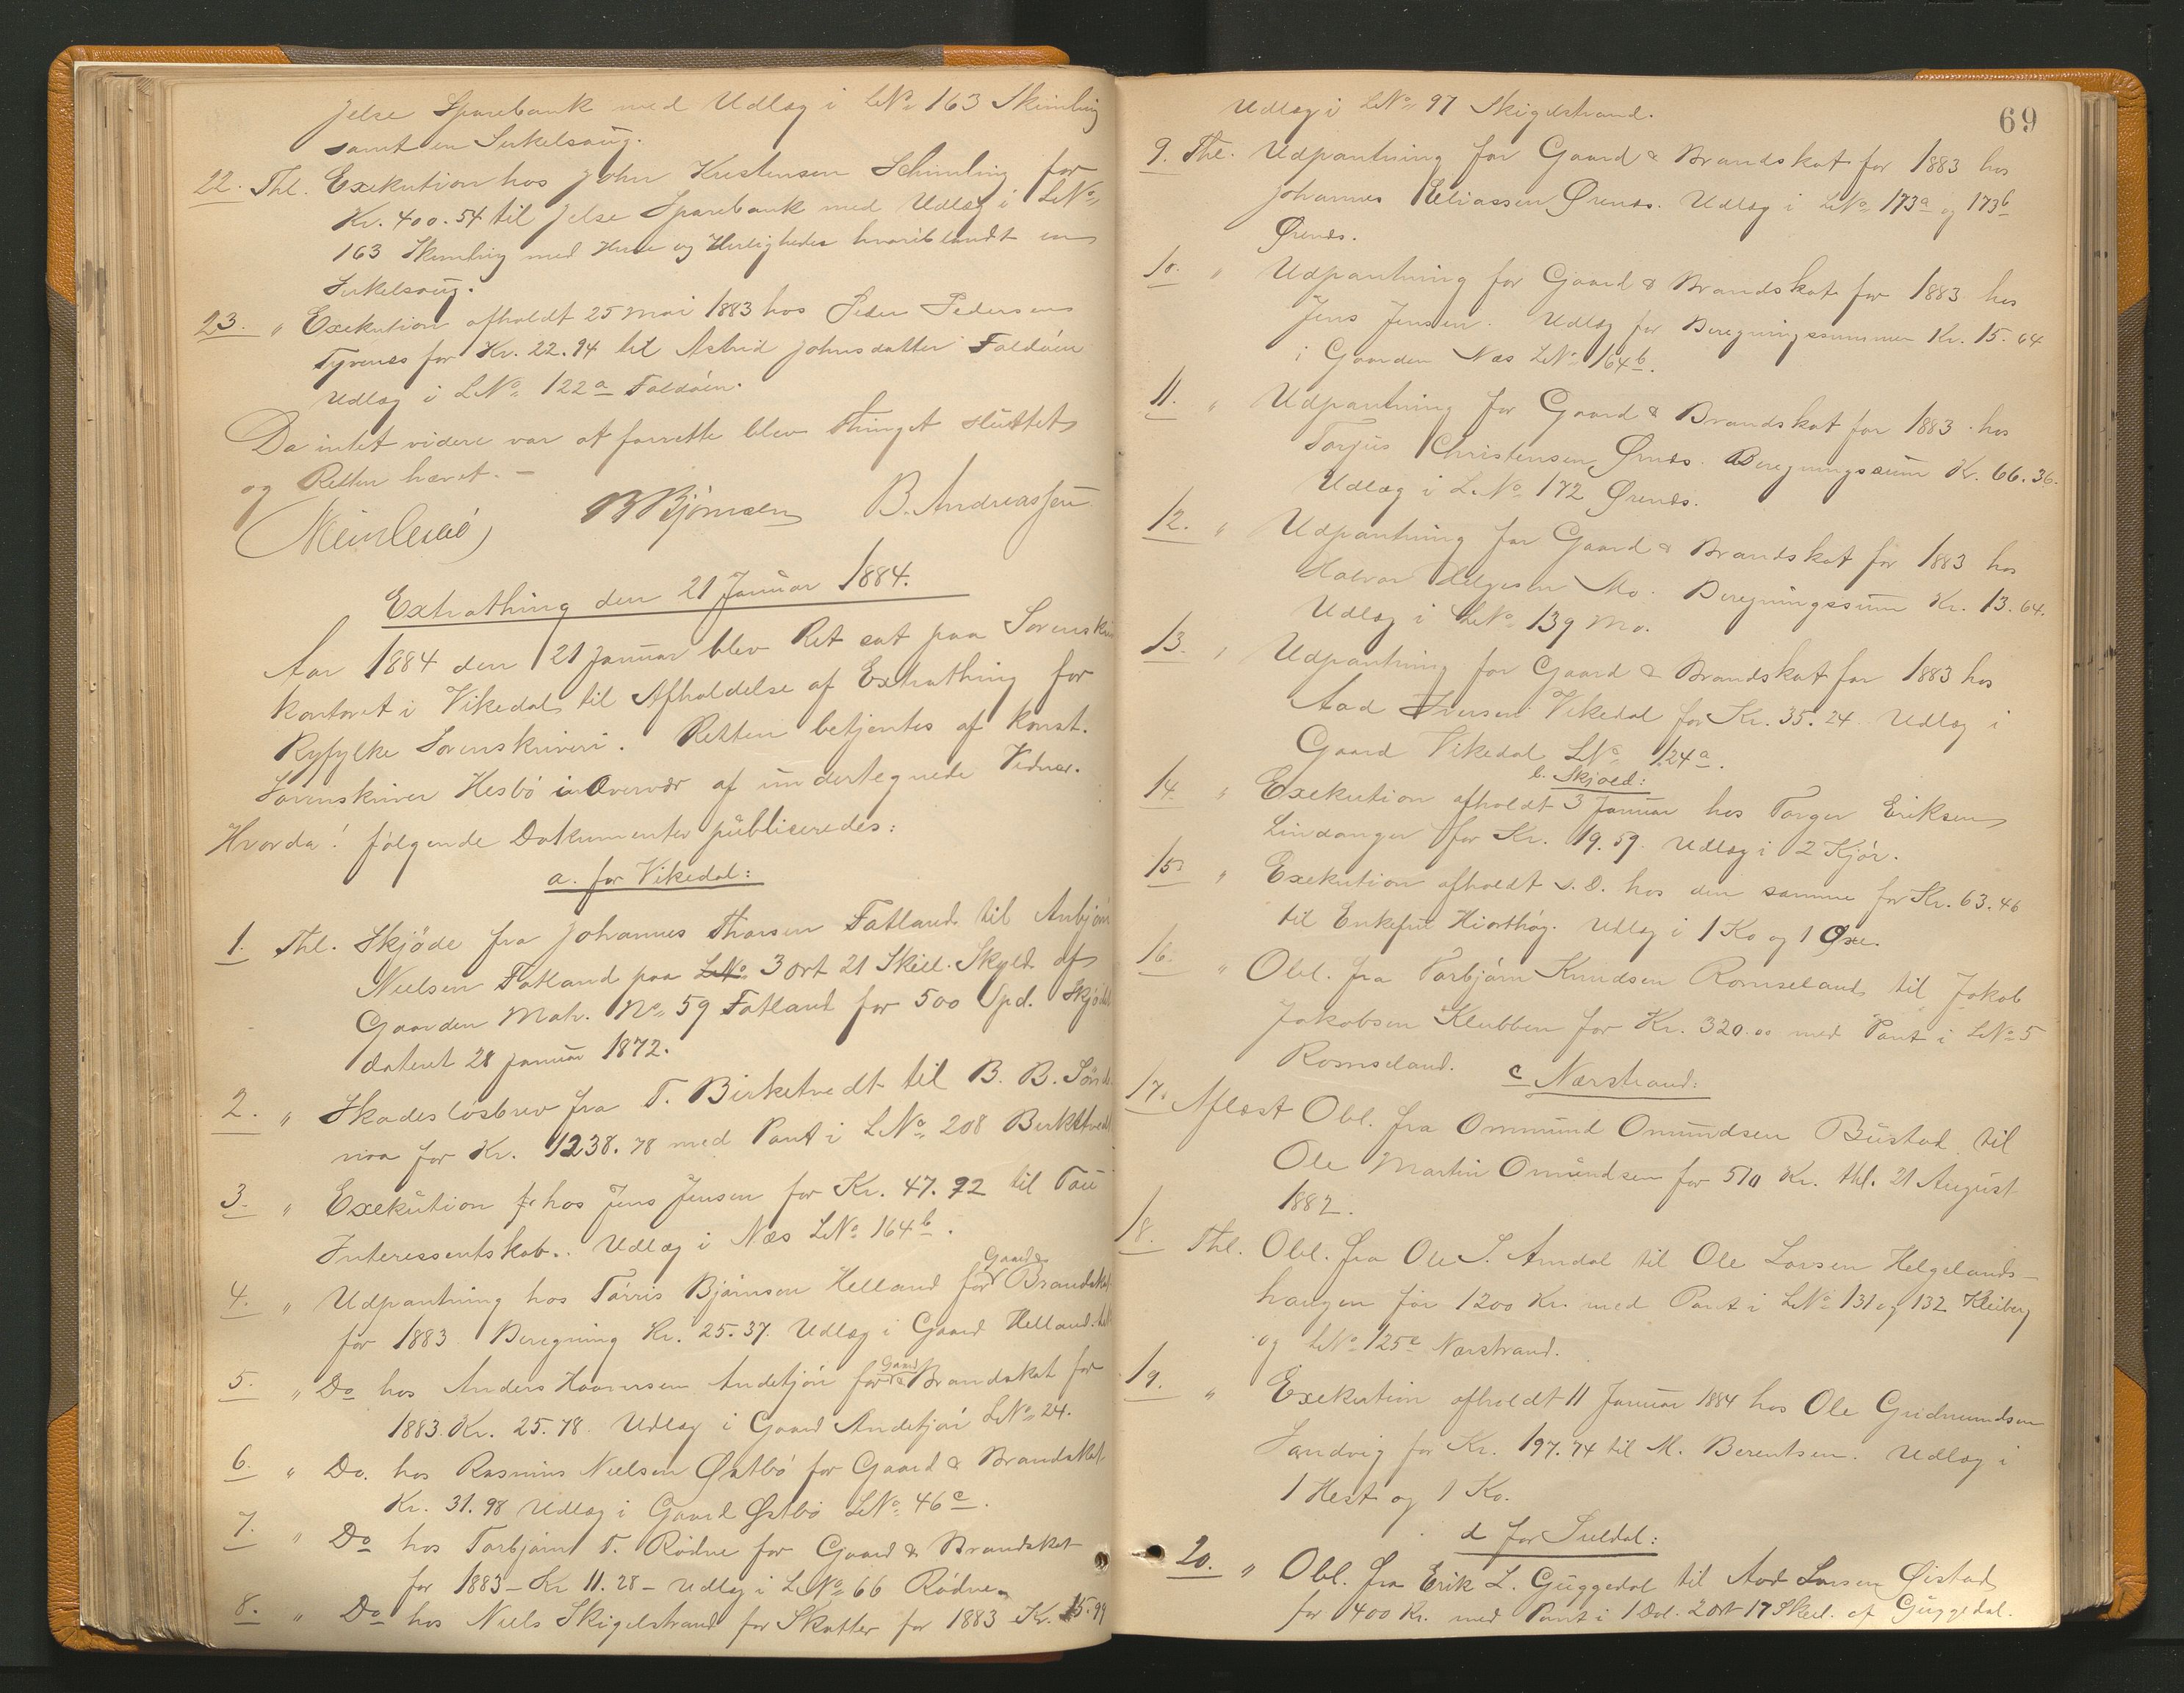 Jelse Sparebank med Udlæg i LNo 163 Skimling
samt en Sirkelsaug.
22. Thl. Exekution hos John Kristensen Schimling for
Kr. 400.54 til Jelse Sparebank med Udlæg i LNo
163 Skimling med Huse og Herligheder hvoriblandt en
Sirkelsaug.
23. " Exekution afholdt 25 Mai 1883 hos Peder Pedersen
Tyvenæs for Kr. 22.94 til Astrid Johnsdatter Foldøien
Udlæg i LNo 122a Foldøien.
Da intet videre var at forrette blev Thinget sluttet
og Retten hævet. -
BBjørnsen B. Andreassen
Extrathing den 21 Januar 1884.
Aar 1884 den 21 Januar blev Ret sat paa Sorenskri
kontoret i Vikedal til Afholdelse af Extrathing for
Ryfylke Sorenskriveri. Retten betjentes af Konst.
Sorenskriver Hesbø i Overvær af undertegnede Vidner.
Hvorda! følgende Dokumenter publiceredes:
a. for Vikedal:
1. Thl. Skjøde fra Johannes Thorsen Fatland til Anbjørn
Nielsen Fatland paa LNo 3 ort 21 Skill. Skyld af
Gaarden Matr. No 59 Fatland for 500 Spd. Skjødet
dateret 28 januar 1872.
2. " Skadesløsbrev fra T. Birketvedt til B. B. Sønd
naa for Kr. 1238.78 med Pant i LNo 208 Birketvedt
3. " Exekution hos Jens Jensen for Kr. 47.92 til Tau
Interessentskab. Udlæg i Næs LNo 164b.
4. " Udpantning hos Tørris Bjørnsen Helland for Gaard & Brandskat
for 1883. Beregning Kr. 25.37. Udlæg i Gaard Helland.
5. " Do hos Anders Haavorsen Andetjøn for Gaard & Brandskat for
1883. Kr. 25.78. Udlæg i Gaard Andetjøn LNo 24.
6. " Do. hos Rasmus Nielsen Østbø for Gaard & Brandskat
Kr. 31.98 Udlæg i Gaard Østbø LNo 46c.
7. " Do hos Torbjørn T. Rødne for Gaard & Brandskat
for 1883 - Kr 11.28 - Udlæg i LNo 66 Rødne.
8. " Do hos Niels Skigelstrand for Skatter for 1883 Kr. 15.99
69
Udlæg i LNo 97 Skigelstrand.
9. Thl. Udpantning for Gaard & Brandskat for 1883 hos
Johannes Eliassen Ørenæs. Udlæg i LNo 173a og 173b
Ørenæs.
10. " Udpantning for Gaard & Brandskat for 1883 hos
Jens Jensen. Udlæg for Beregningssummen Kr. 15.64
i Gaarden Næs LNo 164b.
11. " Udpantning for Gaard & Brandskat for 1883 hos
Torjus Christensen Ørnæs. Beregningssum Kr. 66.36.
Udlæg i LNo 172 Ørenæs.
12. " Udpantning for Gaard & Brandskat for 1883 hos
Halvor Helgesen Mo. Beregningssum Kr. 13.64.
Udlæg i LNo 139 Mo.
13. " Udpantning for Gaard & Brandskat for 1883 hos
Aad Iversen Vikedal for Kr. 35.24. Udlæg i
Gaard Vikedal LNo 124a.
b. Skjold:
14. " Exekution afholdt 3 Januar hos Torger Eriksen
Lindanger for Kr. 19.59. Udlæg i 2 Kjør.
15. " Exekution afholdt s. D. hos den samme for Kr. 63.46
til Enkefru Hiorthøg. Udlæg i 1 Ko og 1 Oxe.
16. " Obl. fra Torbjørn Knudsen Romseland til Jakob
Jakobsen Klubben for Kr. 320.00 med Pant i LNo 5
Romseland.
c Nærstrand:
17. Aflæst Obl. fra Ommund Omundsen Bustad til
Ole Martin Omundsen for 510 Kr. thl. 21 August
1882.
18. Thl. Obl. fra Ole S. Amdal til Ole Larsen Helgelands-
haugen for 1200 Kr. med Pant i LNo 131 og 132 Kleiberg
og LNo 125c Nærstrand.
19. " Exekution afholdt 11 Januar 1884 hos Ole Gudmundsen
Sandvig for Kr. 197.74 til M. Berentsen. Udlæg i
1 Hest og 1 Ko.
d for Suldal:
20. " Obl. fra Erik L. Guggedal til Aad Larsen Øistad
for 400 Kr. med Pant i 1 Dal. 2 ort 17 Skill. af Guggedal.